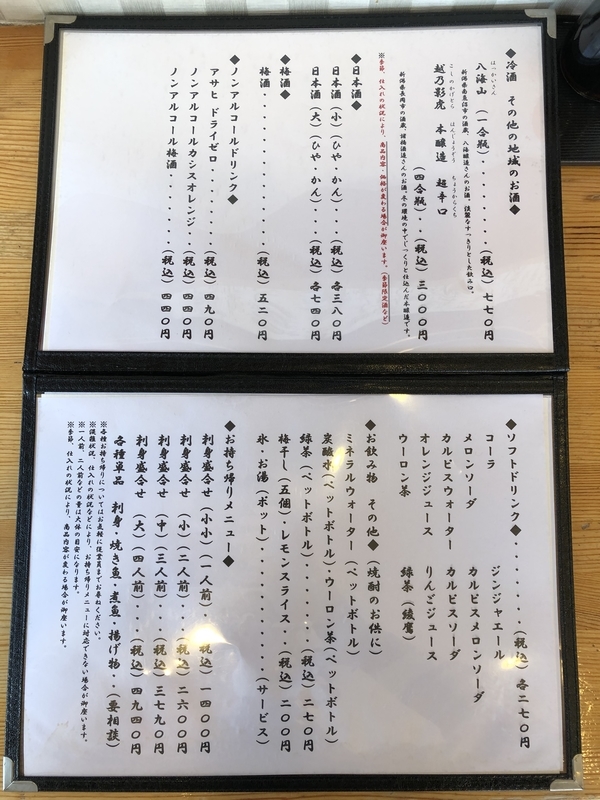 ◆冷酒 その他の地域のお酒◆
はっかいさん
八海山 (一合瓶)・・・・・・・(税込) 七七〇円
新潟県南魚沼市の酒蔵、八海醸造さんのお酒。淡麗なすっきりとした飲み口。
こしのかげとら ほんじょうぞう ちょうからくち
越乃影虎 本醸造 超辛口
(四合瓶)・・(税込) 三〇〇〇円
新潟県長岡市の酒蔵、諸橋酒造さんのお酒。冬の環境の中でじっくりと仕込んだ本醸造です。
※季節、仕入れの状況により、商品内容・価格が変わる場合が御座います。(季節限定酒など)
◆日本酒◆
日本酒 (小) (ひや・かん)・・・(税込) 各三八〇円
日本酒 (大) (ひや・かん)・・・(税込) 各七四〇円
◆梅酒◆
梅酒・・・・・・・・・・・・(税込) 五二〇円
◆ノンアルコールドリンク◆
アサヒ ドライゼロ・・・・・・・(税込) 四九〇円
ノンアルコールカシスオレンジ・・(税込) 四四〇円
ノンアルコール梅酒・・・・・・・(税込) 四四〇円
◆ソフトドリンク◆・・・・・・・(税込) 各二七〇円
コーラ ジンジャエール
メロンソーダ カルピスメロンソーダ
カルピスウォーター カルピスソーダ
オレンジジュース りんごジュース
ウーロン茶 緑茶 (綾鷹)
◆お飲み物 その他◆ (焼酎のお供に)
ミネラルウォーター (ペットボトル)
炭酸水 (ペットボトル)・ウーロン茶 (ペットボトル)
緑茶 (ペットボトル)・・・・・・(税込) 二七〇円
梅干し (五個)・レモンスライス・(税込) 二〇〇円
氷・お湯 (ポット)・・・・・・・(サービス)
◆お持ち帰りメニュー◆
刺身盛合せ (小小) (一人前)・・(税込) 一四〇〇円
刺身盛合せ (小) (二人前)・・・(税込) 二六〇〇円
刺身盛合せ (中) (三人前)・・・(税込) 三七九〇円
刺身盛合せ (大) (四人前)・・・(税込) 四九四〇円
各種単品 刺身・焼き魚・煮魚・揚げ物・・(要相談)
※各種お持ち帰りについてはお気軽に従業員までお尋ねください。
※混雑状況、仕入れの状況などにより、お持ち帰りメニューに対応できない場合が御座います。
※一人前、二人前などの量は大体の目安になります。
※季節、仕入れの状況により、商品内容が変わる場合が御座います。